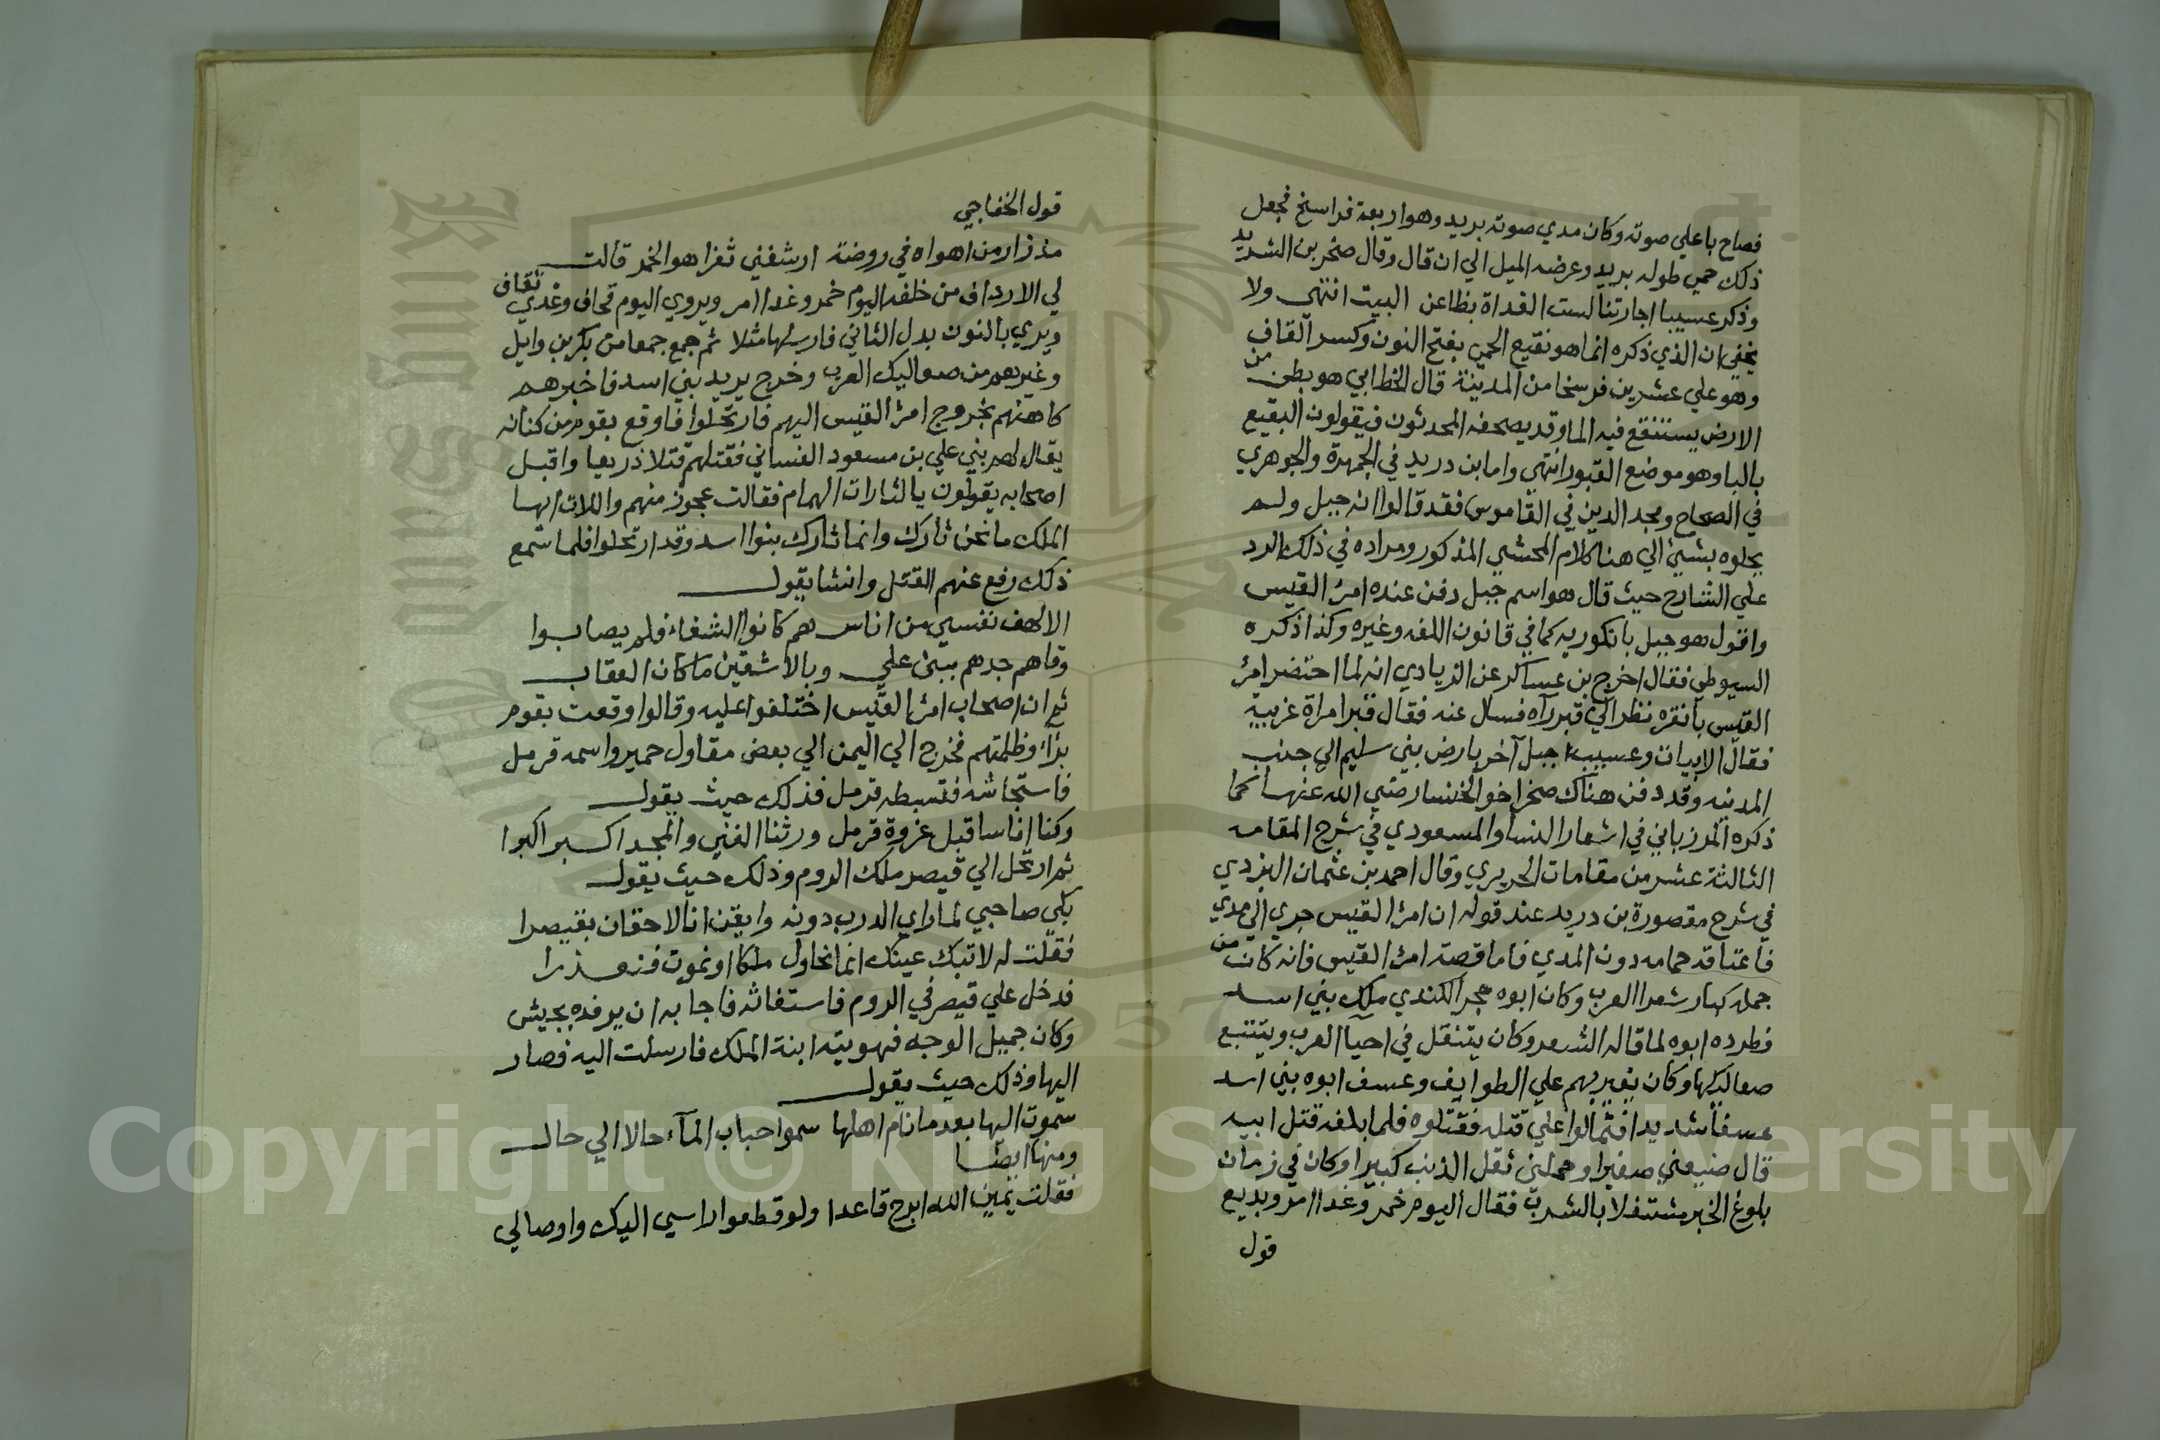 فصاح باعلي صوته وكان مدي صوته بريد وهو اربعة فراسخ فجعل
ذلك حمي طوله بريد وعرضه الميل الي ان قال وقال صخر بن الشريد
وذكر عسيبا اجارتنا لست الغداة بظاعن البيت انتهي ولا
يخفي ان الذي ذكره انما هو نقيع الحمي بفتح النون وكسر القاف
وهو علي عشرين فرسخا من المدينة قال الخطابي هو بطن من
الارض يستنقع فيه الما وقد يصحفه المحدثون فيقولون البقيع
بالبا وهو موضع القبور انتهي واما بن دريد في الجمهرة والجوهري
في الصحاح ومجد الدين في القاموس فقد قالوا انه جبل ولم
يحلوه بشيئ الي هنا كلام المحشي المذكور ومراده في ذلك الرد
علي الشارح حيث قال هو اسم جبل دفن عنده امرئ القيس
واقول هو جبل بانكوريه كما في قانون اللغه وغيره وكذا ذكره
السيوطي فقال اخرج بن عساكر عن الزيادي انه لما احتضر امرئ
القيس بانقره نظر الي قبر رآه فسال عنه فقال قبر امراة غريبة
فقال الابيات وعسيب جبل آخر بارض بني سليم الي جنب
المدينه وقد دفن هناك صخر اخو الخنسا رضي الله عنها كما
ذكره المرزباني في اشعار النسا والمسعودي في شرح المقامه
الثالثة عشر من مقامات الحريري وقال احمد بن عثمان اليزدي
في شرح مقصورة بن دريد عند قوله ان امرا القيس جري الي مدي
فاعتاقه حمامه دون المدي فاما قصة امرا القيس فانه كان من
جملة كبار شعرا العرب وكان ابوه حجر الكندي ملك بني اسد
فطرده ابوه لما قاله الشعر وكان يتنقل في احيا العرب ويتتبع
صعاليكها وكان يغير بهم علي الطوايف وعسف ابوه بني اسد
عسفا شديدا فتمالوا علي قتله فقتلوه فلما بلغه قتل ابيه
قال ضيعني صغيرا وحملني ثقل الذنب كبيرا وكان في زمان
بلوغ الخبر مشتغلا بالشرب فقال اليوم خمر وغدا امر وبديع
قول
قول الخفاجي
مذ زار من اهواه في روضة ارشفني ثغرا هو الخمر قالت
لي الارداف من خلفه اليوم خمر وغدا امر ويروي اليوم قحاف وغدي نقاف
ويري بالنون بدل الثاني فارسلها مثلا ثم جمع جمعا من بكر بن وايل
وغيرهم من صعاليك العرب وخرج يريد بني اسد فاخبرهم
كاهنهم بخروج امرئ القيس اليهم فارتحلوا فاوقع بقوم من كنانه
يقال لهم بني علي بن مسعود الغساني فقتلهم قتلا ذريعا واقبل
اصحابه يقولون يالثارات الهمام فقالت عجوز منهم واللات ايها
الملك ما نحن ثارك وانما ثارك بنوا اسد وقد ارتحلوا فلما سمع
ذلك رفع عنهم القتل وانشا يقول
الا لهف نفسي من اناس هم كانوا الشفاء فلم يصابوا
وقاهم جدهم ببني علي وبالاشقين ما كان العقاب
ثم ان اصحاب امرئ القيس اختلفوا عليه وقالوا وقعت بقوم
برآء وظلمتهم فخرج الي اليمن الي بعض مقاول حمير واسمه قرمل
فاستجاشه فثبطه قرمل فذلك حيث يقول
وكنا اناسا قبل غزوة قرمل ورثنا الغني والمجد اكبر اكبرا
ثم ارتحل الي قيصر ملك الروم وذلك حيث يقول
بكي صاحبي لما راي الدرب دونه وايقن انا لاحقان بقيصرا
فقلت له لا تبك عينك انما نحاول ملكا او نموت فنعذرا
فدخل علي قيصر في الروم فاستغاثه فاجابه ان يرفده بجيش
وكان جميل الوجه فهويته ابنة الملك فارسلت اليه فصار
اليها وذلك حيث يقول
سموت اليها بعد ما نام اهلها سمو احباب المآء حالا الي حال
ومنها ايضا
فقلت يمين الله ابرح قاعدا ولو قطعوا راسي اليك واوصالي
Copyright © King Saud University